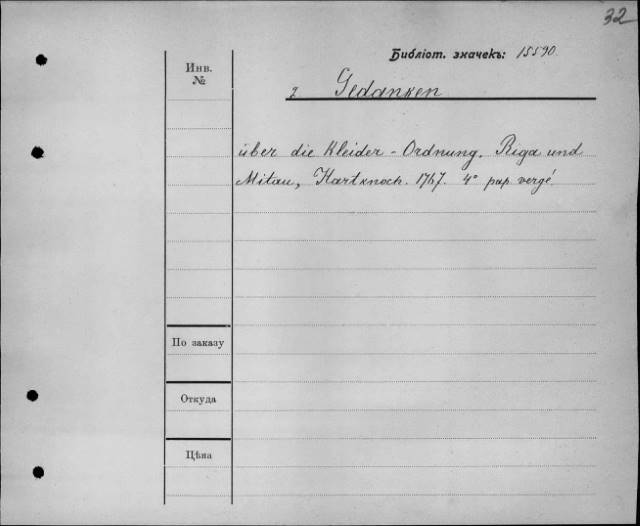 32
Библіот. значекъ: 15590.
Инв.
№
2 Gedanken
über die Kleider-Ordnung. Riga und
Mitau, Hartknoch. 1767. 4° pap. vergé
По заказу
Откуда
Цѣна